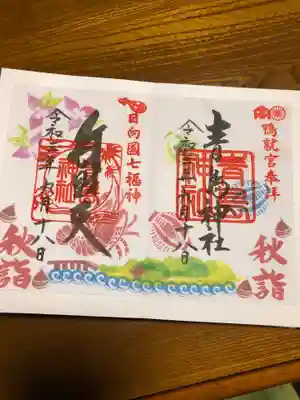 鴨就宮奉拝
青島神社
令和三年九月十八日
秋詣
日向國七福神
弁財天
令和三年九月十八日
秋詣